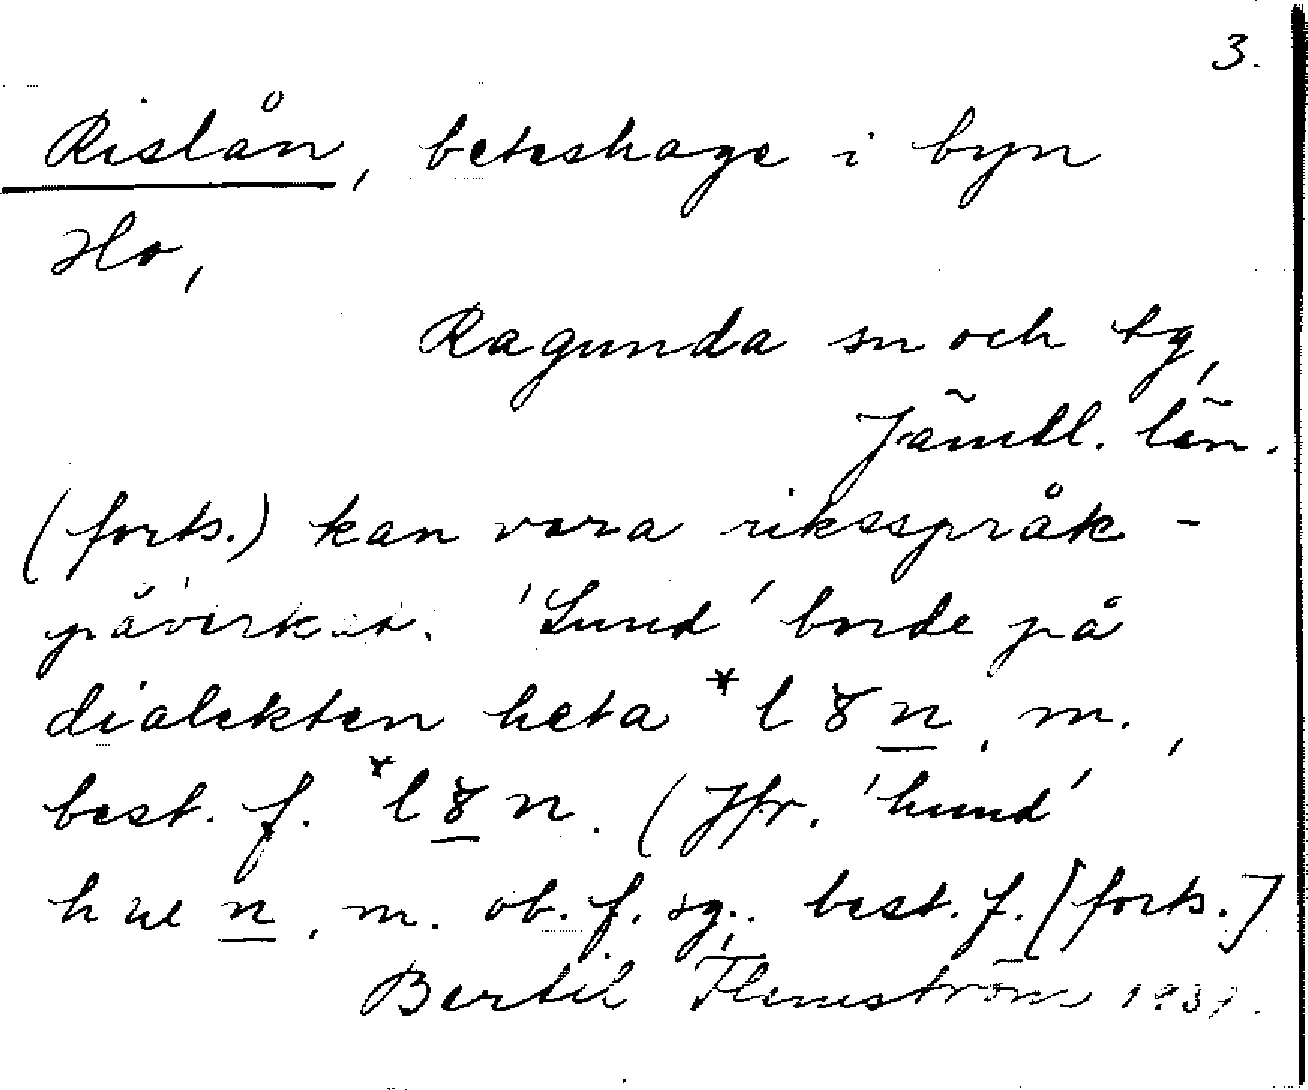 3.
Rislån, beteshage i byn
Ho,
Ragunda sn och tg,
Jämtl. län.
(forts.) kan vara riksspråk-
påverkat. 'Lund' borde på
dialekten heta *l n, m.,
best. f. *l n. (Jfr. 'hund'
n, m. ob. f. sg., best. f. [forts.]
Bertil Flemström